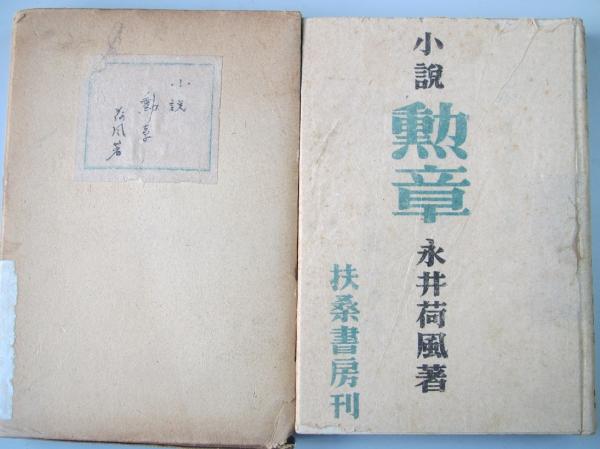 小説
勲章
荷風著
小說
勲章
永井荷風著
扶桑書房刊